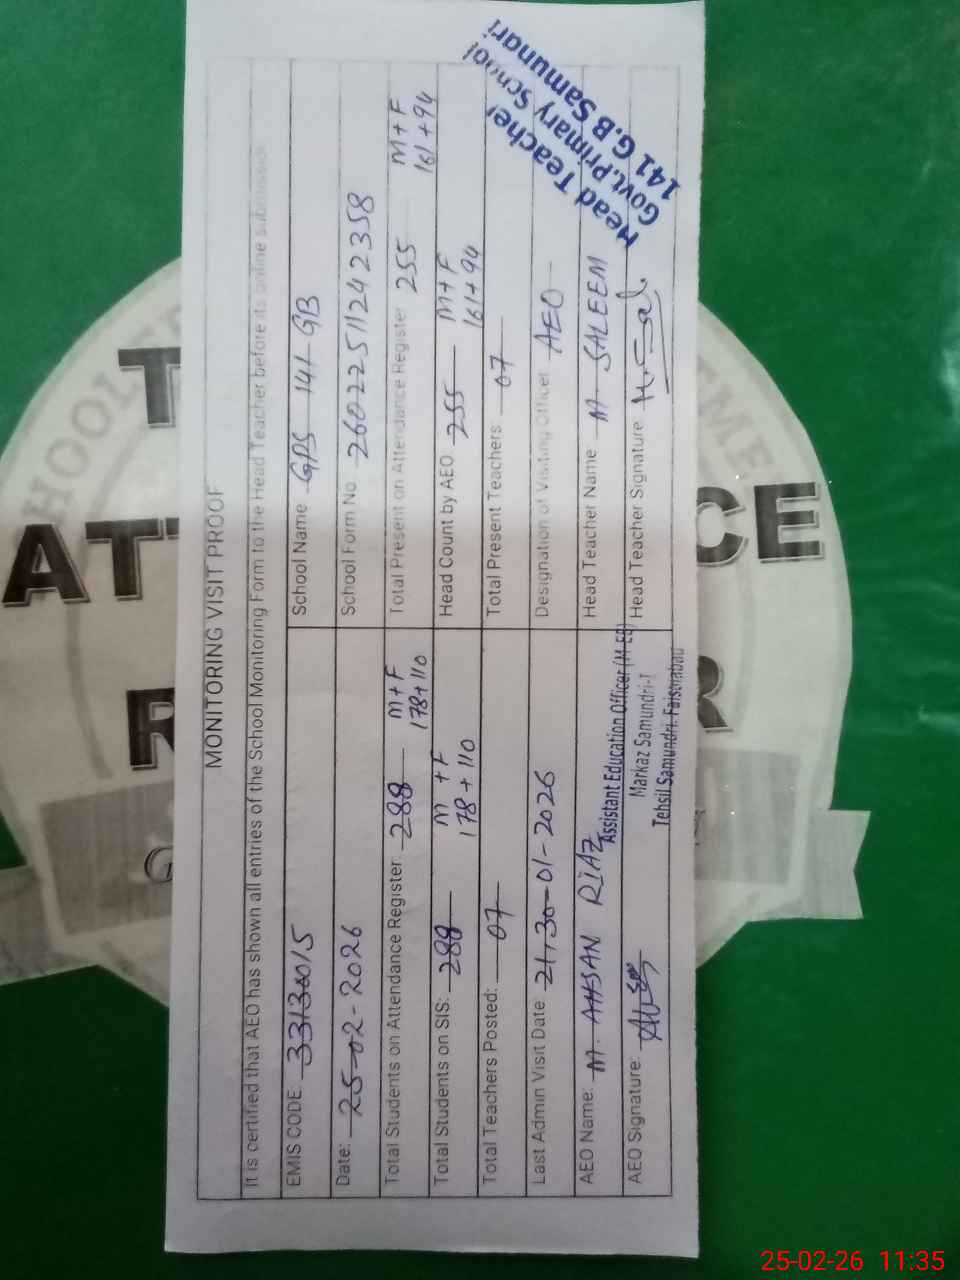 MONITORING VISIT PROOF
It is certified that AEO has shown all entries of the School Monitoring Form to the Head Teacher before its online submission
EMIS CODE: 33130015 School Name GPS 141 GB
Date: 25-02-2026 School Form No 260225111242358
Total Students on Attendance Register: 288 M+F 178+110 Total Present on Attendance Register 255 M+F 161+94
Total Students on SIS: 288 M+F 178+110 Head Count by AEO 255 M+F 161+94
Total Teachers Posted: 07 Total Present Teachers 07
Last Admin Visit Date: 30-01-2026 Designation of Visiting Officer AEO
AEO Name: M. AHSAN RIAZ Head Teacher Name M. SALEEM
AEO Signature: Head Teacher Signature
Assistant Education Officer (M-EE)
Markaz Samundri-I
Tehsil Samundri. Faisalabad
Head Teacher
Govt.Primary School
141 G.B Samundri
25-02-26 11:35